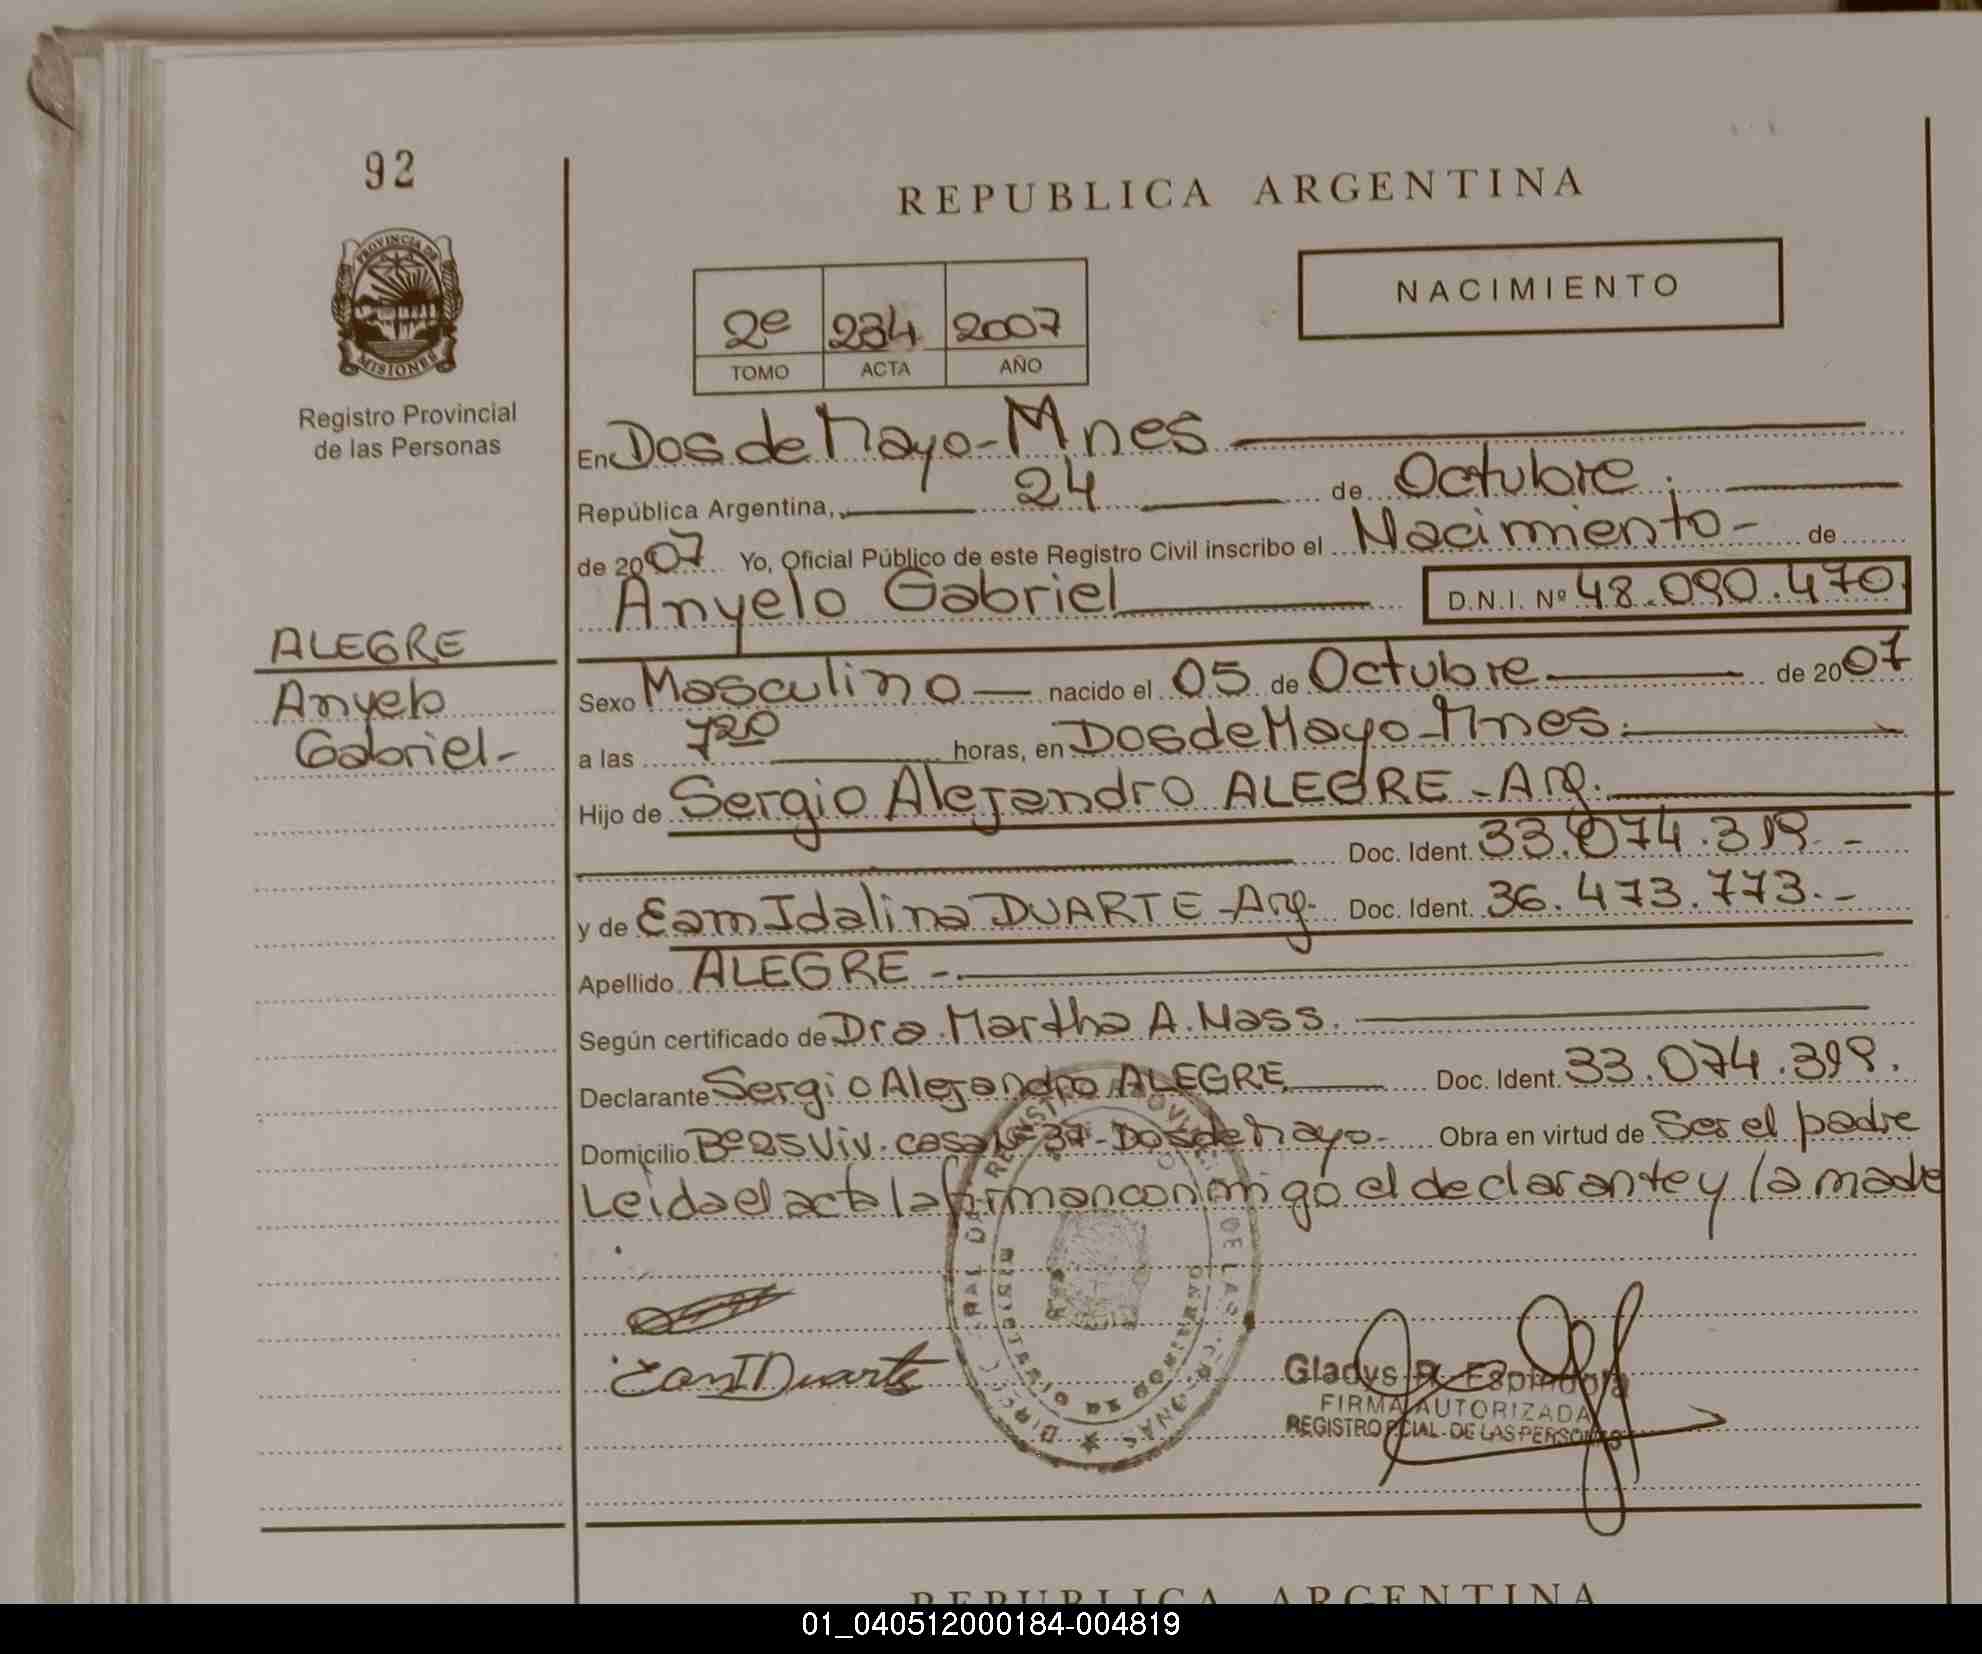 92
REPUBLICA ARGENTINA
PROVINCIA DE
MISIONES
NACIMIENTO
2º 234 2007
TOMO ACTA AÑO
Registro Provincial
de las Personas
En Dos de Mayo - Mnes
República Argentina, 24 de Octubre.
de 2007 Yo, Oficial Público de este Registro Civil inscribo el Nacimiento - de
Anyelo Gabriel D.N.I. Nº 48.090.470
ALEGRE
Anyelo
Gabriel -
Sexo Masculino nacido el 05 de Octubre de 2007
a las 7 20 horas, en Dos de Mayo - Mnes.
Hijo de Sergio Alejandro ALEGRE - Arg.
Doc. Ident. 33.074.319 -
y de Eam Idalina DUARTE - Arg. Doc. Ident. 36.473.773.-
Apellido ALEGRE -.
Según certificado de Dra. Martha A. Mass.
Declarante Sergio Alejandro ALEGRE Doc. Ident. 33.074.319.
Domicilio Bº 25 Viv. casa Nº 37 - Dos de Mayo - Obra en virtud de Ser el padre
Leida el acta la firman conmigo el declarante y la madre
Eam I Duarte
Gladys R. Espindola
FIRMA AUTORIZADA
REGISTRO PCIAL. DE LAS PERSONAS
REPUBLICA ARGENTINA
01_040512000184-004819